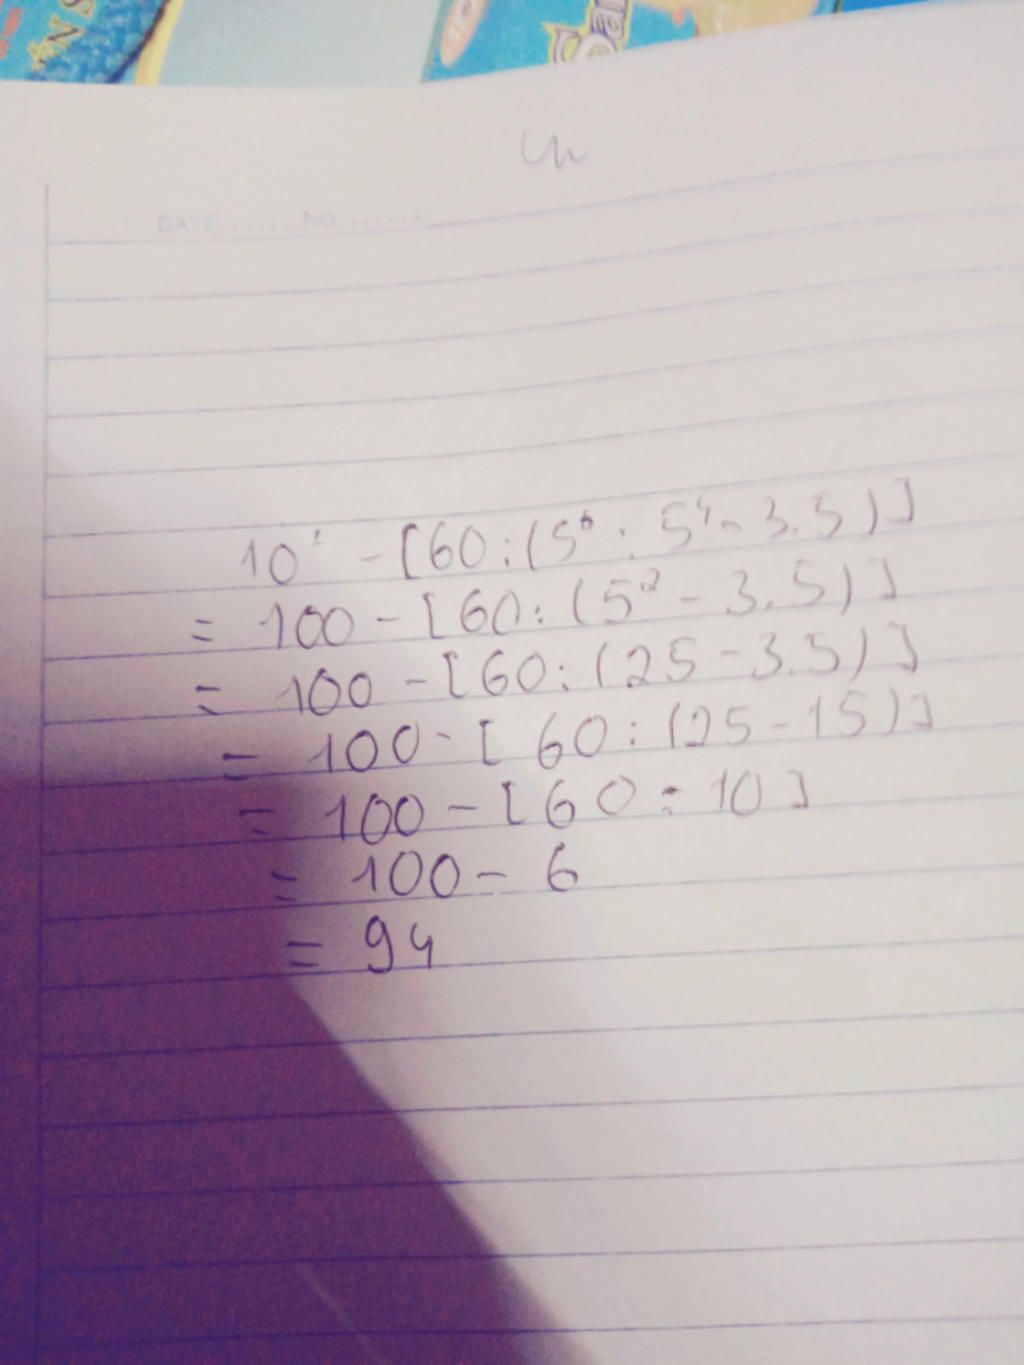 DATE ..... NO ......
10² - [60 : (5⁶ : 5⁴ - 3.5)]
= 100 - [60 : (5² - 3.5)]
= 100 - [60 : (25 - 3.5)]
= 100 - [60 : (25 - 15)]
= 100 - [60 : 10]
= 100 - 6
= 94